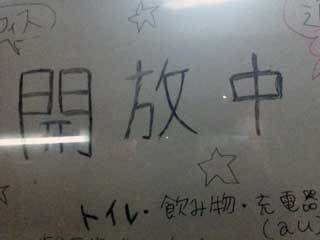 フィス
開放中
トイレ・飲み物・充電器
(au)